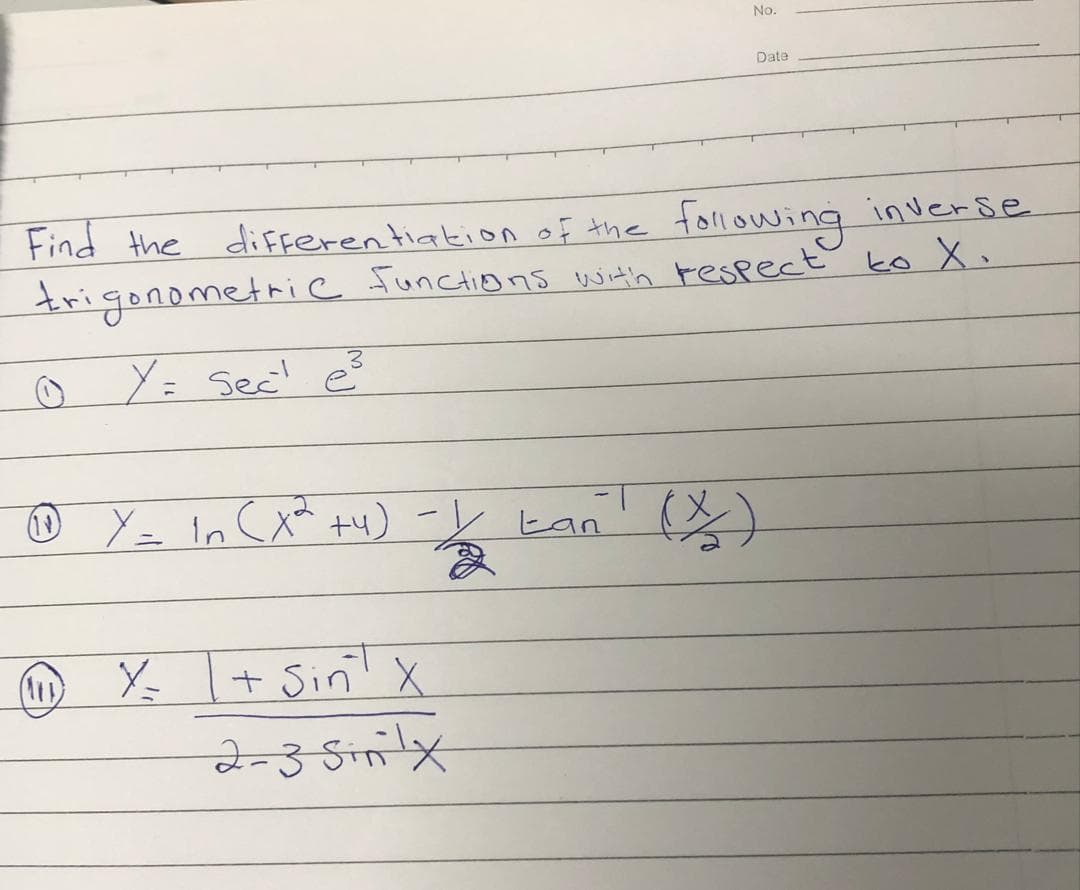 No.
Date
Find the differentiation of the following inverse
trigonometric functions with respect to X.
(i) Y = Sec⁻¹ e³
(ii) Y = ln (x² + 4) - 1/2 tan⁻¹ (x/2)
(iii) Y = 1 + Sin⁻¹ X
2 - 3 Sin⁻¹ X